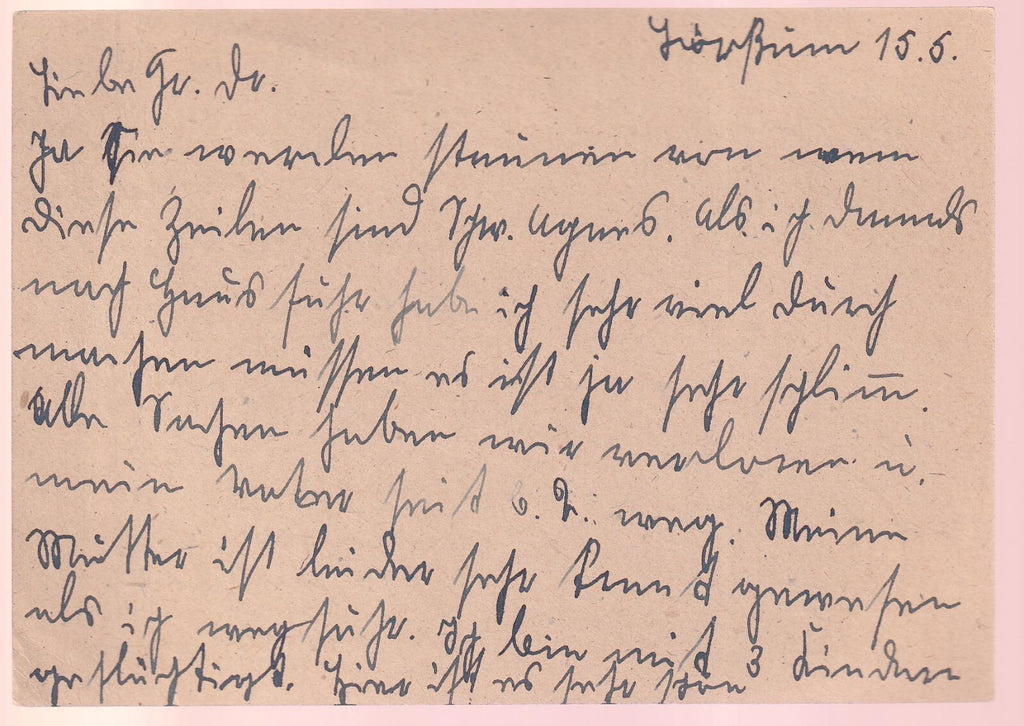 Hörßum 15.5.
Liebe Fr. Dr.
Ja Sie werden staunen von wem
diese Zeilen sind Schw. Agnes. Als ich damals
nach Haus fuhr habe ich sehr viel durch
machen müssen es ist ja sehr schlimm.
Alle Sachen haben wir verloren u.
mein Vater seit 6. 2. weg. Meine
Mutter ist leider sehr krank gewesen
als ich wegfuhr. Ich bin mit 3 Kindern
geflüchtigt. Hier ist es sehr schön